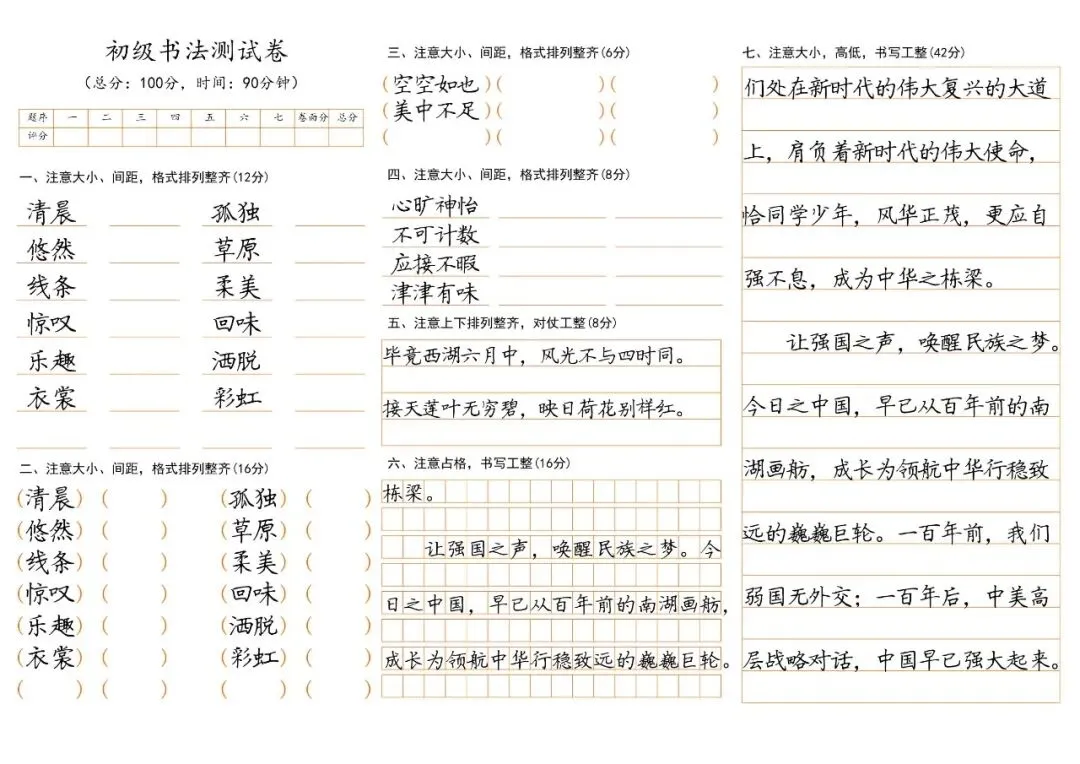 初级书法测试卷
(总分：100分，时间：90分钟)
题序 一 二 三 四 五 六 七 卷面分 总分
评分
一、注意大小、间距，格式排列整齐(12分)
清晨 孤独
悠然 草原
线条 柔美
惊叹 回味
乐趣 洒脱
衣裳 彩虹
二、注意大小、间距，格式排列整齐(16分)
(清晨) ( ) (孤独) ( )
(悠然) ( ) (草原) ( )
(线条) ( ) (柔美) ( )
(惊叹) ( ) (回味) ( )
(乐趣) ( ) (洒脱) ( )
(衣裳) ( ) (彩虹) ( )
( ) ( ) ( ) ( )
三、注意大小、间距，格式排列整齐(6分)
(空空如也) ( ) ( )
(美中不足) ( ) ( )
( ) ( ) ( )
四、注意大小、间距，格式排列整齐(8分)
心旷神怡
不可计数
应接不暇
津津有味
五、注意上下排列整齐，对仗工整(8分)
毕竟西湖六月中，风光不与四时同。
接天莲叶无穷碧，映日荷花别样红。
六、注意占格，书写工整(16分)
栋梁。
让强国之声，唤醒民族之梦。今
日之中国，早已从百年前的南湖画舫，
成长为领航中华行稳致远的巍巍巨轮。
七、注意大小，高低，书写工整(42分)
们处在新时代的伟大复兴的大道
上，肩负着新时代的伟大使命，
恰同学少年，风华正茂，更应自
强不息，成为中华之栋梁。
让强国之声，唤醒民族之梦。
今日之中国，早已从百年前的南
湖画舫，成长为领航中华行稳致
远的巍巍巨轮。一百年前，我们
弱国无外交；一百年后，中美高
层战略对话，中国早已强大起来。